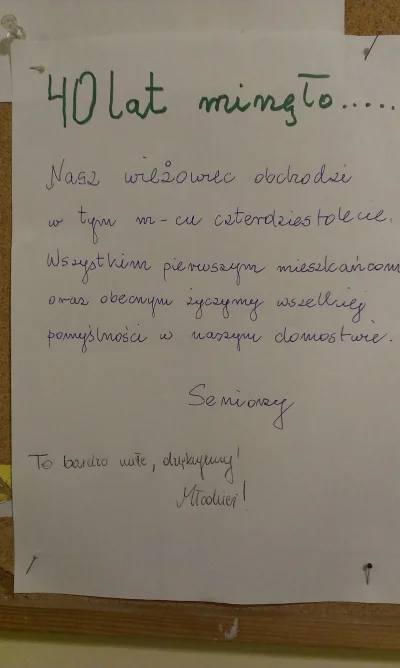 40 lat minęło.....
Nasz wieżowiec obchodzi
w tym m-cu czterdziestolecie.
Wszystkim pierwszym mieszkańcom
oraz obecnym życzymy wszelkiej
pomyślności w naszym domostwie.
Seniorzy
To bardzo miłe, dziękujemy!
Młodzież!